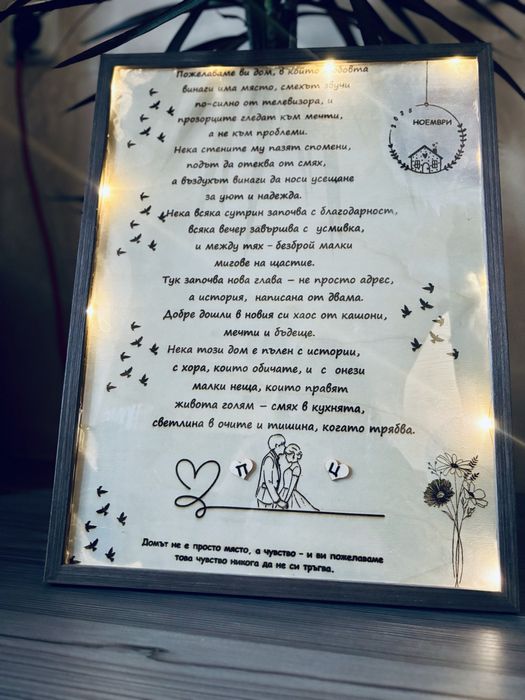 Пожелаваме ви дом, в който любовта
винаги има място, смехът звучи
по-силно от телевизора, и
прозорците гледат към мечти,
а не към проблеми.
Нека стените му пазят спомени,
подът да отеква от смях,
а въздухът винаги да носи усещане
за уют и надежда.
Нека всяка сутрин започва с благодарност,
всяка вечер завършва с усмивка,
и между тях - безброй малки
мигове на щастие.
Тук започва нова глава – не просто адрес,
а история, написана от двама.
Добре дошли в новия си хаос от кашони,
мечти и бъдеще.
Нека този дом е пълен с истории,
с хора, които обичате, и с онези
малки неща, които правят
живота голям – смях в кухнята,
светлина в очите и тишина, когато трябва.
2025
НОЕМВРИ
П
Ц
Домът не е просто място, а чувство - и ви пожелаваме
това чувство никога да не си тръгва.